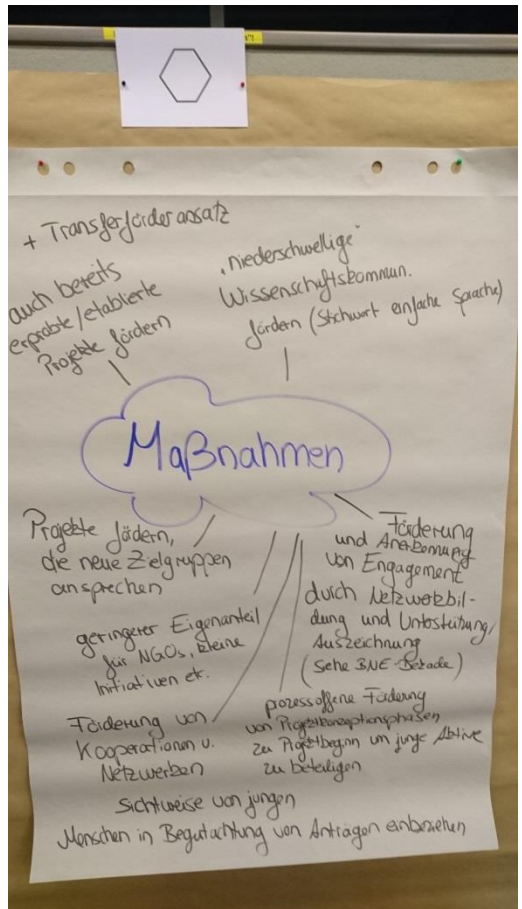 + Transferförderansatz
auch bereits
erprobte/etablierte
Projekte fördern
„niederschwellige“
Wissenschaftskommun.
fördern (Stichwort einfache Sprache)
Maßnahmen
Projekte fördern,
die neue Zielgruppen
ansprechen
Förderung
und Anerkennung
von Engagement
durch Netzwerkbil-
dung und Unterstützung,
Auszeichnung
(Siehe BNE-Dekade)
geringerer Eigenanteil
für NGOs, kleine
Initiativen etc.
Förderung von
Kooperationen u.
Netzwerken
prozessoffene Förderung
von Projektkonzeptionsphasen
zu Projektbeginn um junge Aktive
zu beteiligen
Sichtweise von jungen
Menschen in Begutachtung von Anträgen einbeziehen